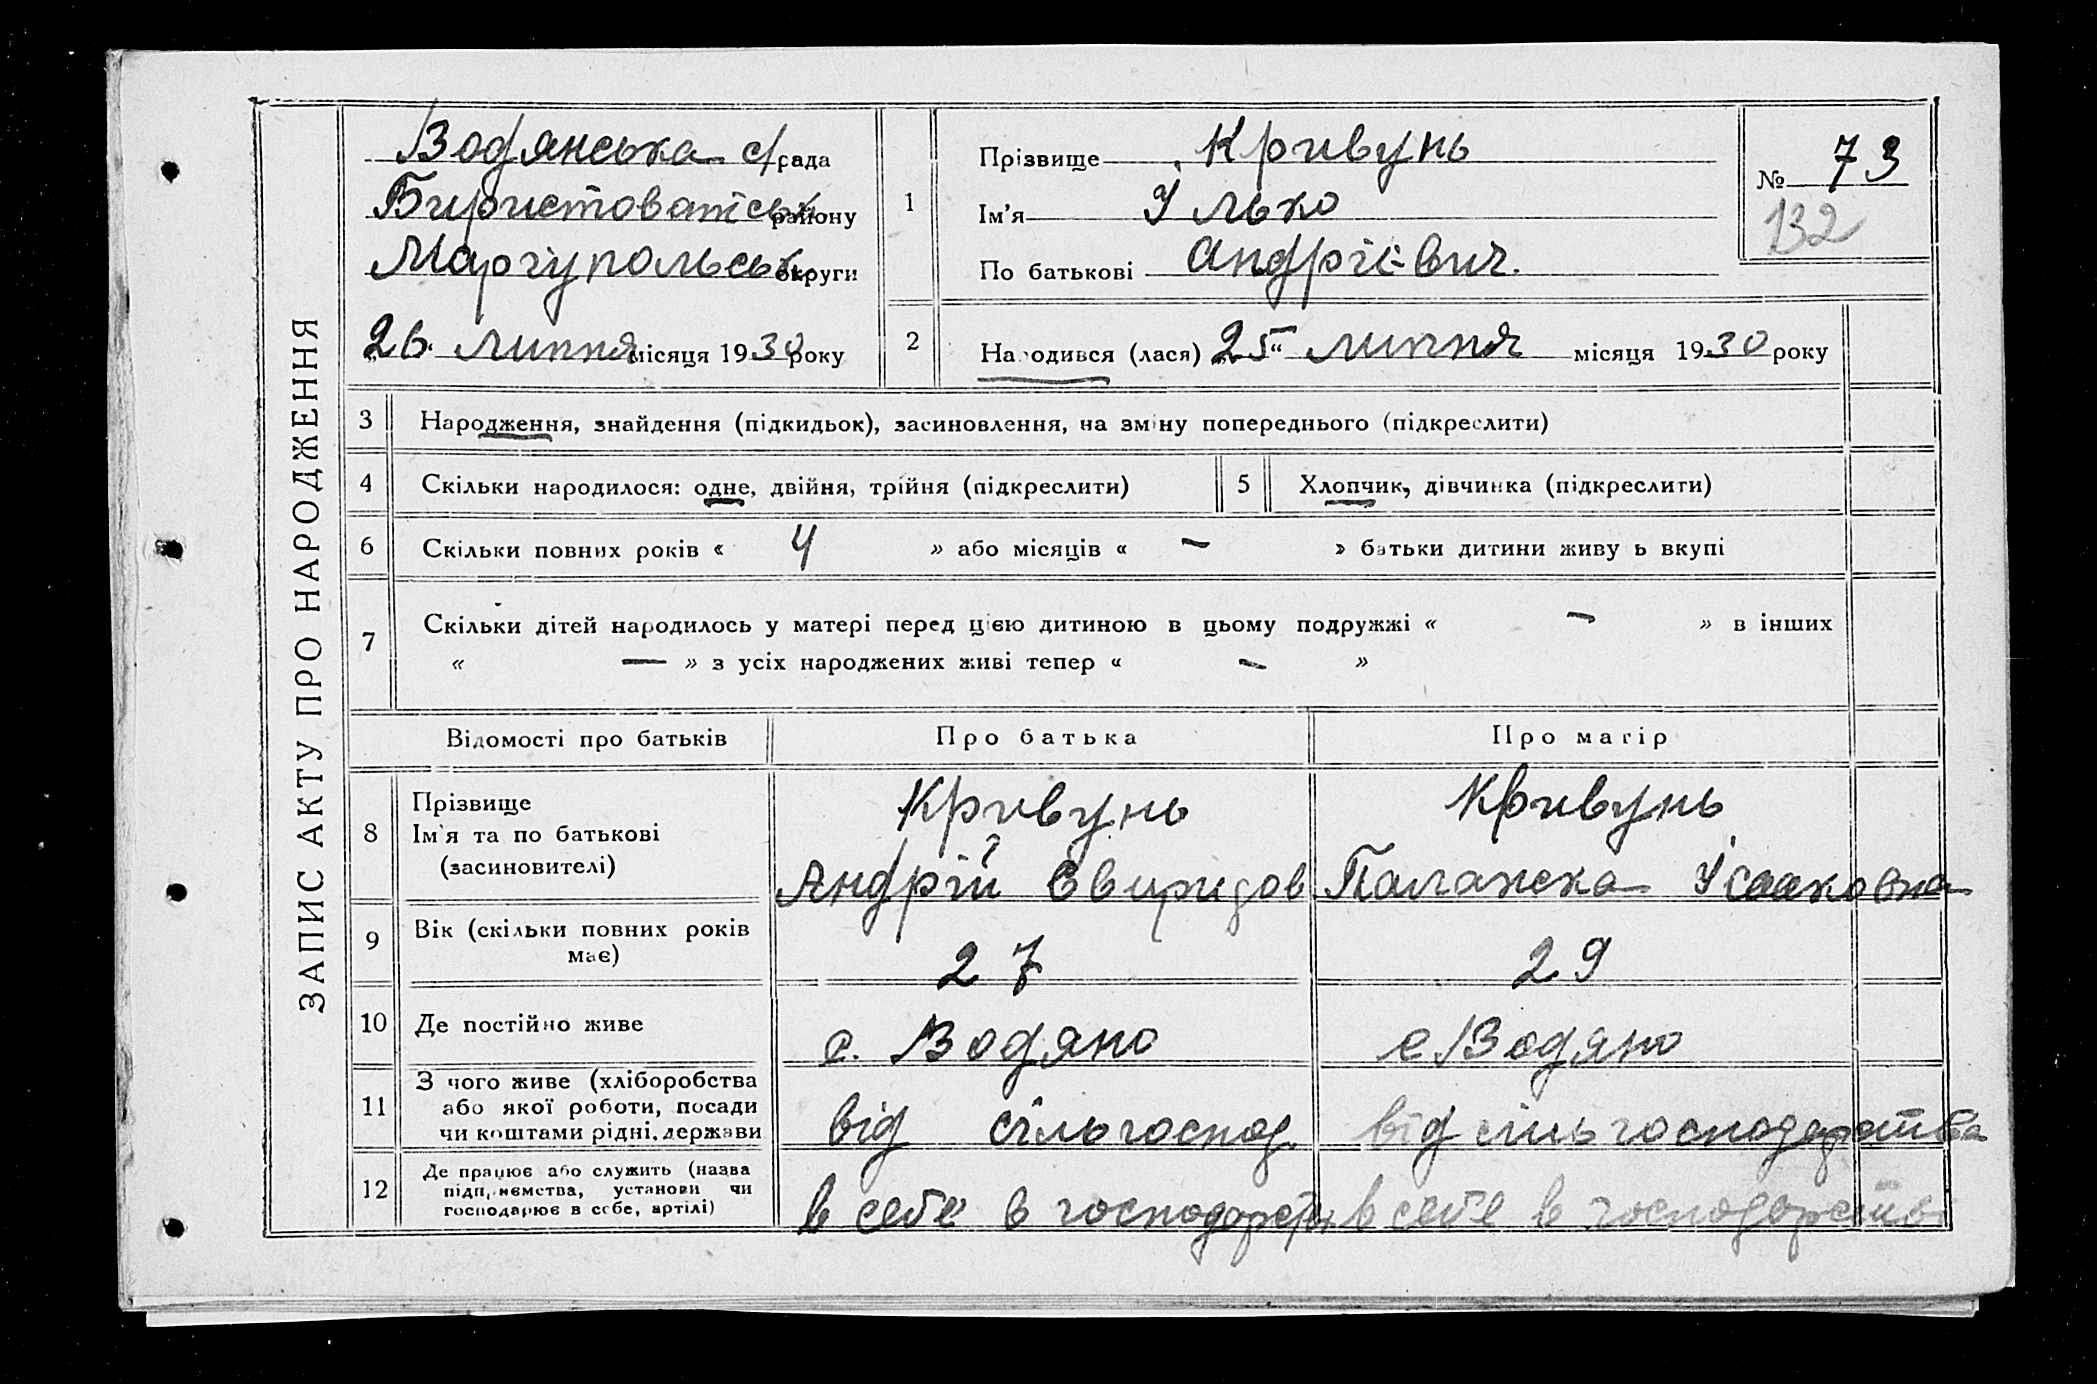 ЗАПИС АКТУ ПРО НАРОДЖЕННЯ
Водянська с/рада
району
Маріупольськ округи
26 липня місяця 1930 року
1
Прізвище Кривунь
Ім'я Ілько
По батькові Андрієвич
№ 73
132
2 Народився (лася) „25“ липня місяця 1930 року
3 Народження, знайдення (підкидьок), засиновлення, на зміну попереднього (підкреслити)
4 Скільки народилося: одне, двійня, трійня (підкреслити)
5 Хлопчик, дівчинка (підкреслити)
6 Скільки повних років « 4 » або місяців « – » батьки дитини живуть вкупі
7 Скільки дітей народилось у матері перед цією дитиною в цьому подружжі « – » в інших
« — » з усіх народжених живі тепер « – »
Відомості про батьків Про батька Про матір
8 Прізвище
Ім'я та по батькові
(засиновителі)
Кривунь
Андрій Свиридов
Кривунь
Палажска Ісааковна
9 Вік (скільки повних років
має)
27
29
10 Де постійно живе
с. Водяно
с Водяно
11 З чого живе (хліборобства
або якої роботи, посади
чи коштами рідні, держави
від сільгоспод.
від сільгосподарства
12 Де працює або служить (назва
підприємства, установи чи
господарює в себе, артілі)
в себе в господарств
в себе в господарстві